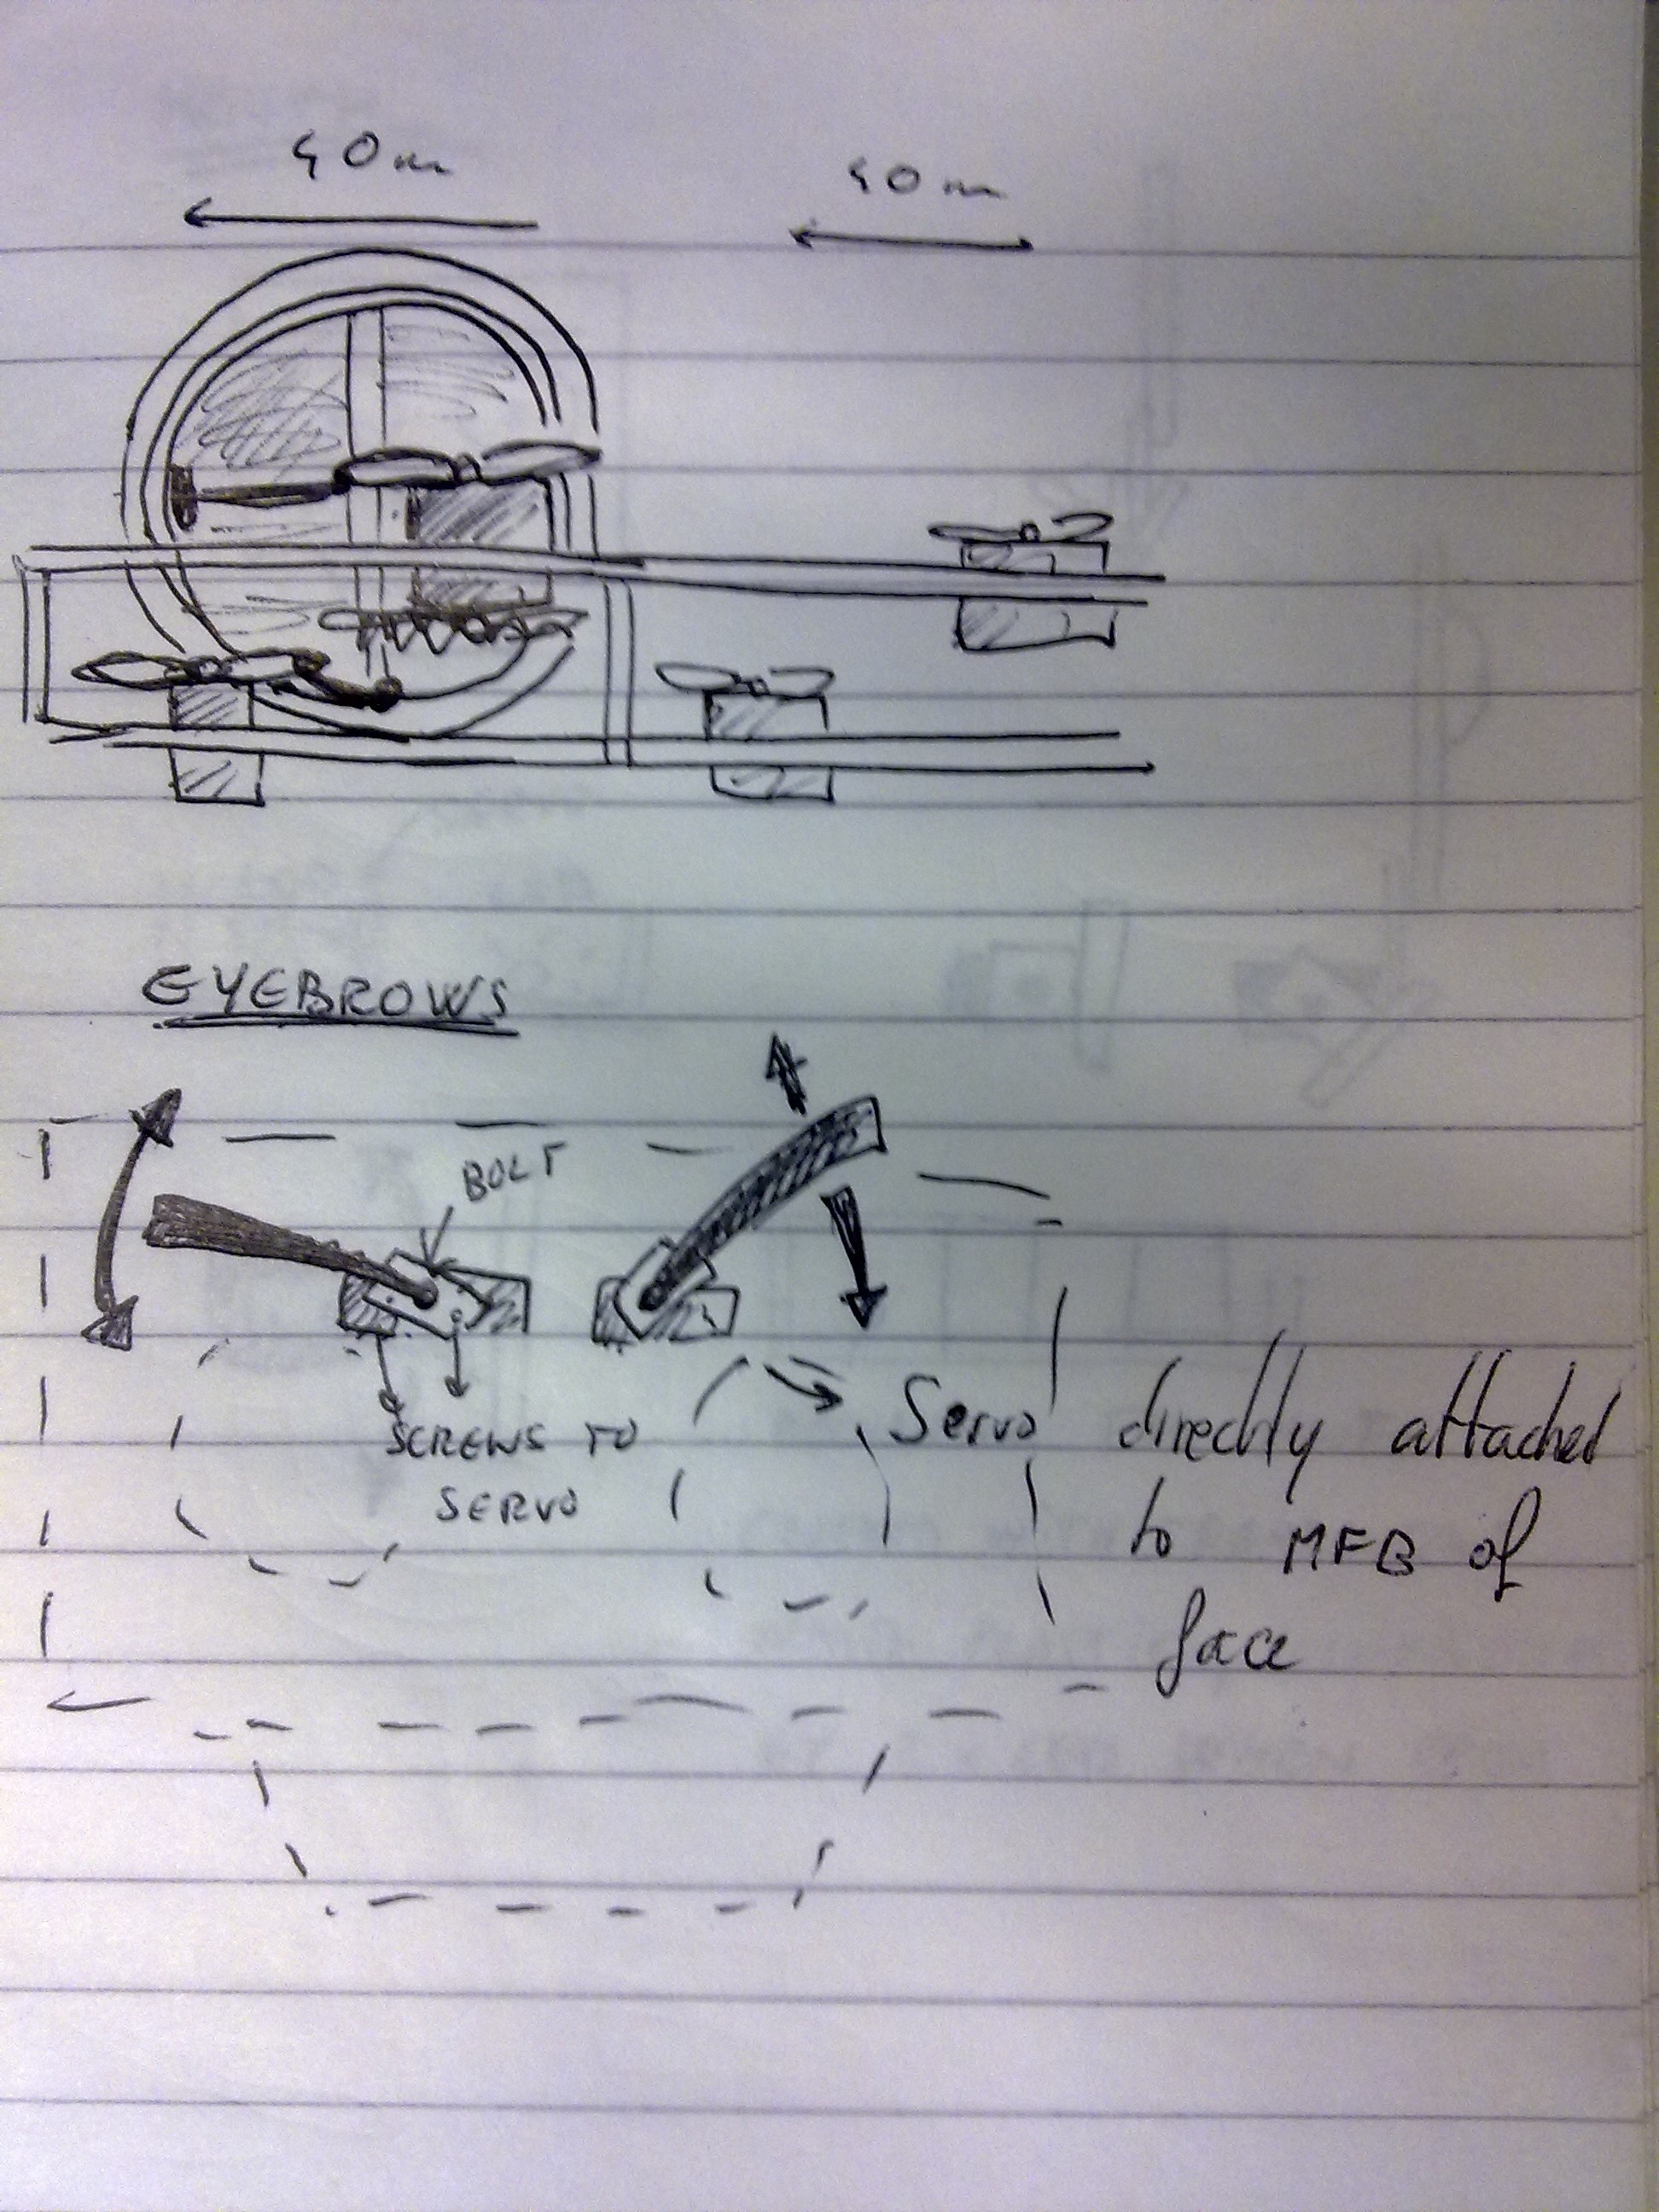 40m
40m
EYEBROWS
BOLT
SCREWS TO
SERVO
Servo directly attached
to MFB of
face